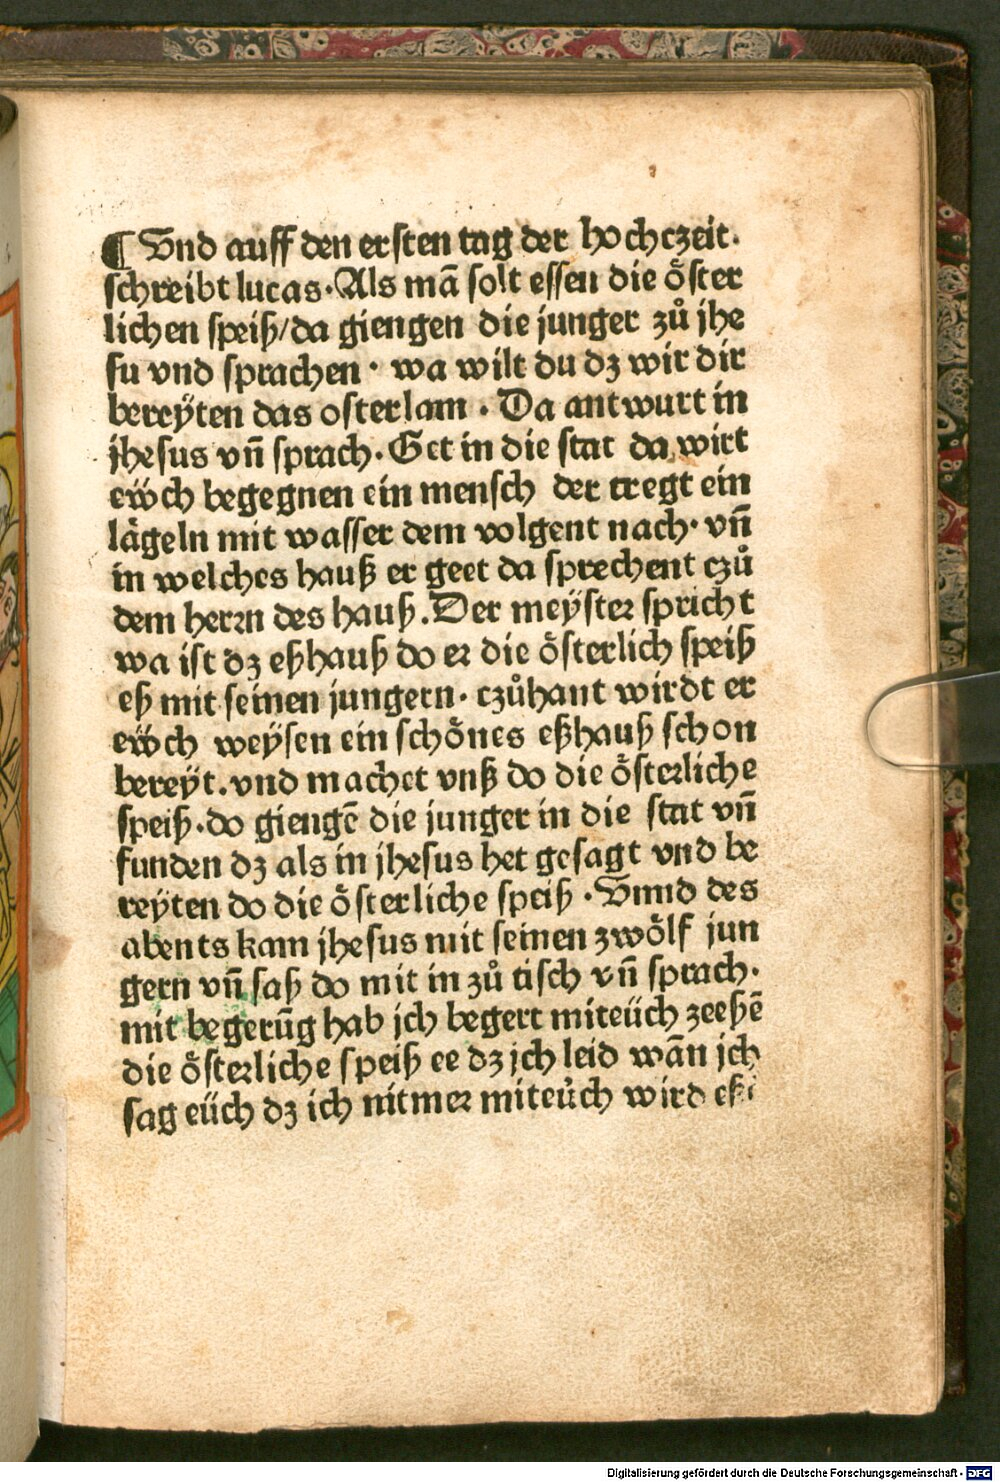 ¶ Vnd auff den ersten tag der hochczeit.
schreibt lucas. Als mā solt essen die öster
lichen speiß/da giengen die junger zů jhe
su vnd sprachen . wa wilt du dz wir dir
bereÿten das osterlam . Da antwurt in
jhesus vñ sprach. Get in die stat da wirt
eẅch begegnen ein mensch der tregt ein
lägeln mit wasser dem volgent nach. vñ
in welches hauß er geet da sprechent czů
dem herrn des hauß. Der meÿster spricht
wa ist dz eßhauß do er die österlich speiß
eß mit seinen jungern. czůhant wirdt er
eẅch weÿsen ein schönes eßhauß schon
bereÿt. vnd machet vnß do die österliche
speiß. do giengē die junger in die stat vñ
funden dz als in jhesus het gesagt vnd be
reÿten do die österliche speiß . Vnnd des
abents kam jhesus mit seinen zwölf jun
gern vñ saß do mit in zů tisch vñ sprach.
mit begerūg hab jch begert miteüch zeeßē
die österliche speiß ee dz jch leid wān jch
sag eüch dz ich nitmer miteüch wird
Digitalisierung gefördert durch die Deutsche Forschungsgemeinschaft - DFG